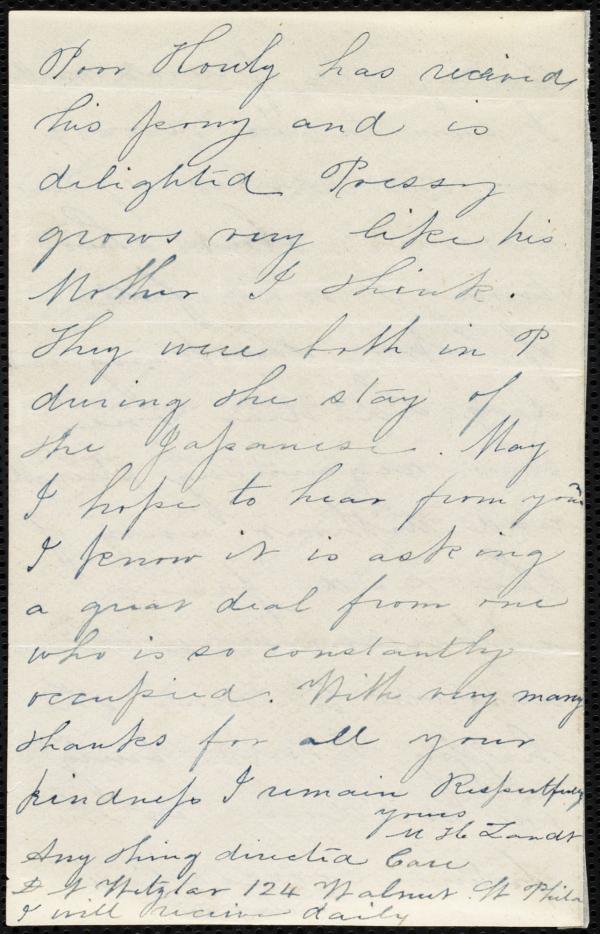 Poor Howly has received
his pony and is
delighted Pressy
grows very like his
Mother I think.
They were both in P
during the stay of
the Japanese. May
I hope to hear from you
I know it is asking
a great deal from one
who is so constantly
occupied. With very many
thanks for all your
kindness I remain Respectfully
yours
M H Zandt
Any thing directed Care
Wetzlar 124 Walnut St Phila
I will receive daily